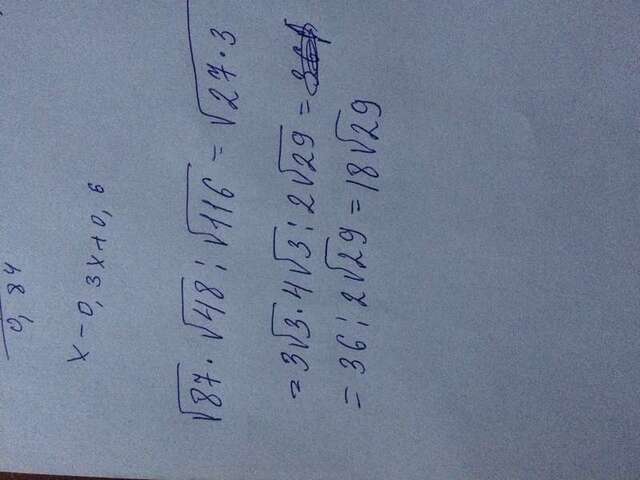 0,84
x-0,3x+0,6
√87·√48:√116=√27·3
=3√3·4√3:2√29=
=36:2√29=18√29